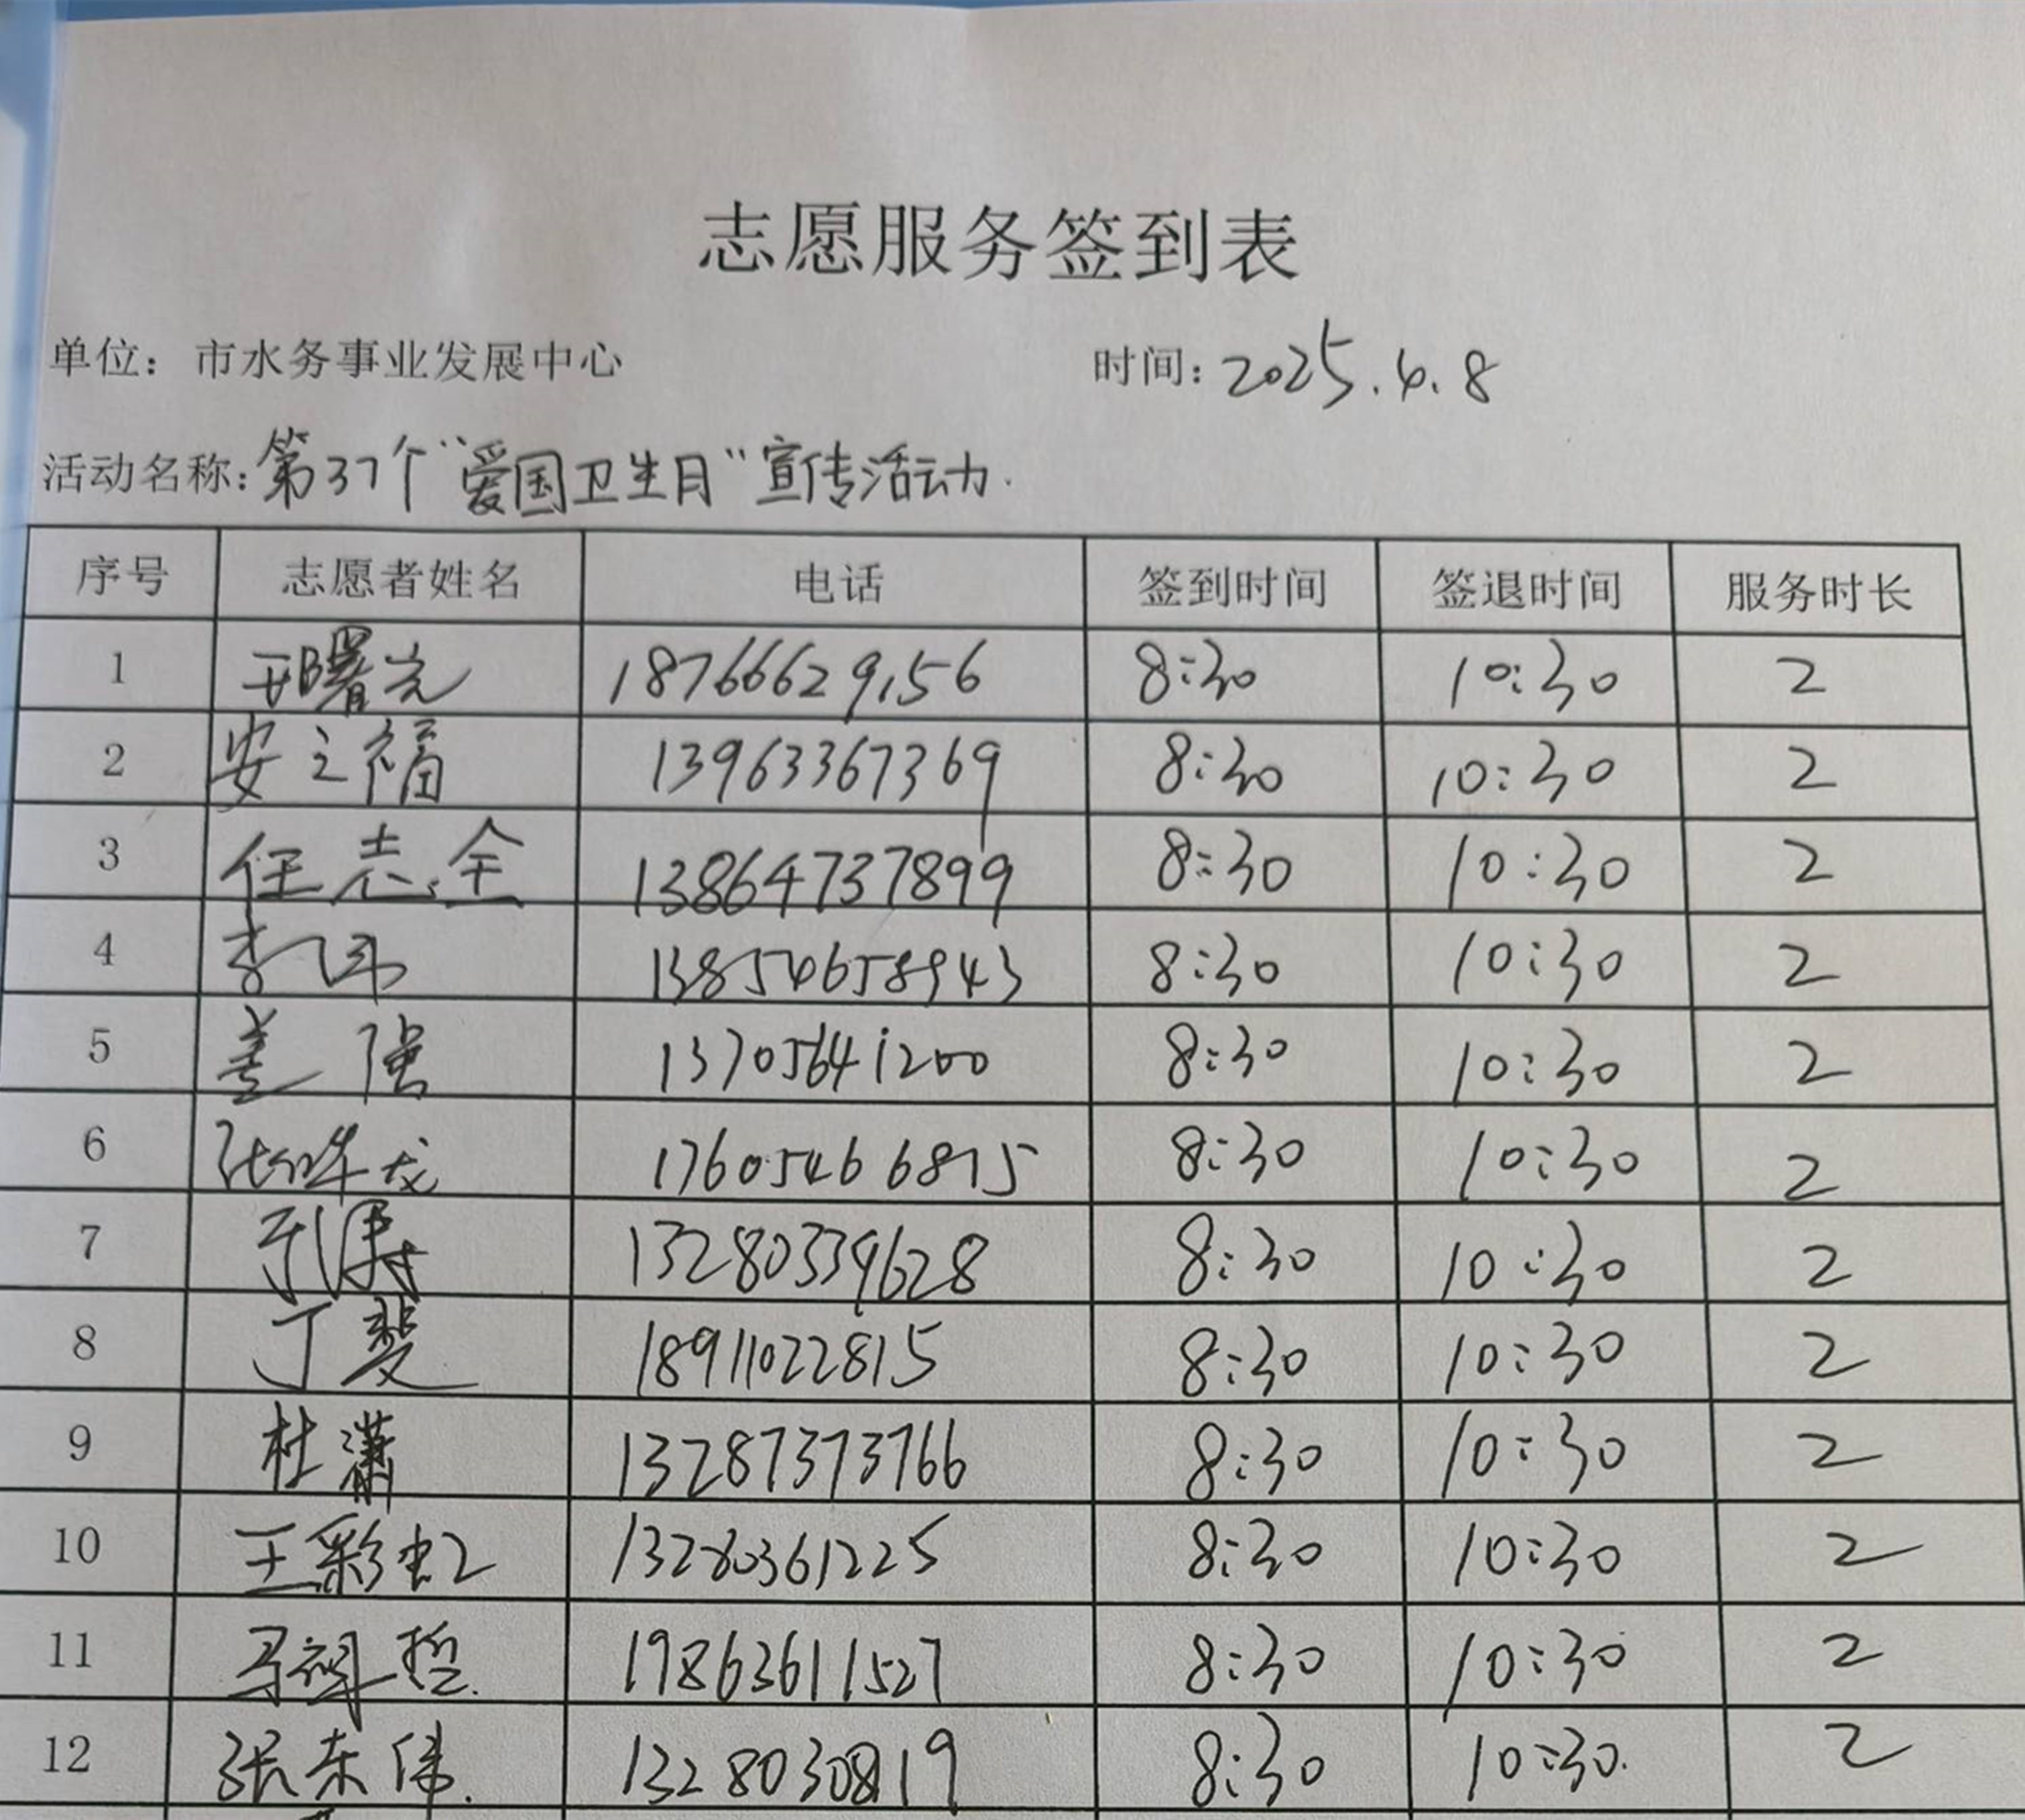 志愿服务签到表
单位：市水务事业发展中心 时间：2025.4.8
活动名称：第37个“爱国卫生月”宣传活动.
序号 志愿者姓名 电话 签到时间 签退时间 服务时长
1 邢曙光 18766629156 8:30 10:30 2
2 安之福 13963367369 8:30 10:30 2
3 任志全 13864737899 8:30 10:30 2
4 李伟 13854658943 8:30 10:30 2
5 姜强 13705641200 8:30 10:30 2
6 17605466875 8:30 10:30 2
7 于涛 13280339628 8:30 10:30 2
8 丁斐 18911022815 8:30 10:30 2
9 杜潇 13287373766 8:30 10:30 2
10 王彩虹 13280361225 8:30 10:30 2
11 19863611527 8:30 10:30 2
12 张东伟. 13280308819 8:30 10:30. 2